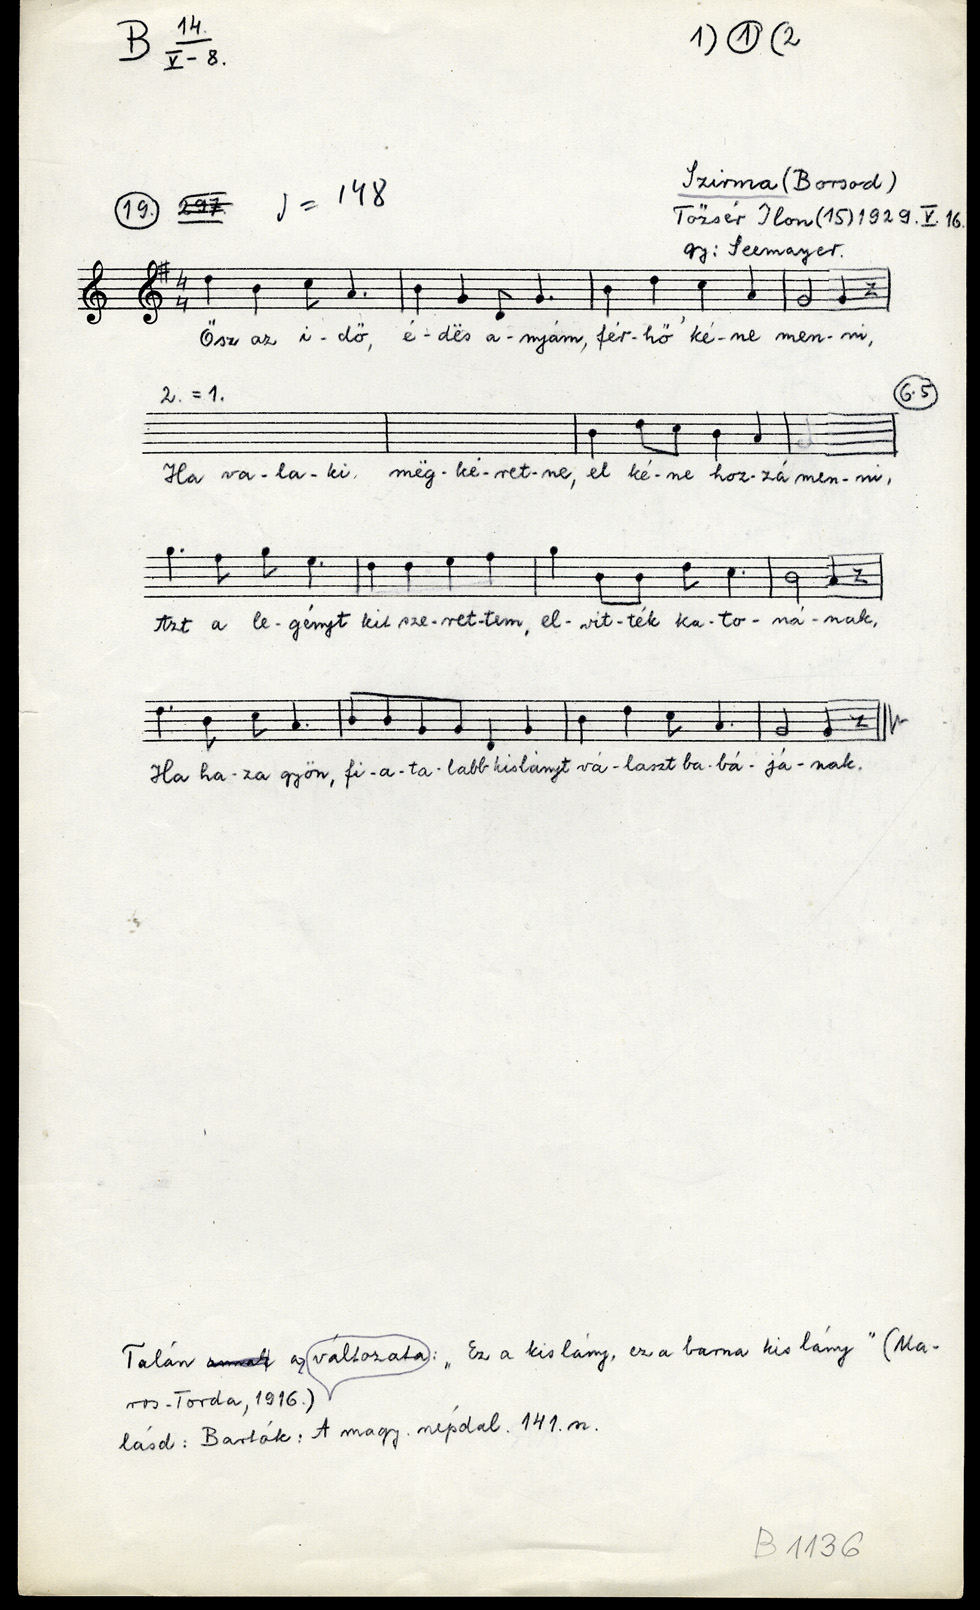 B 14. / V-8.
1) ① (2
Szirma (Borsod)
19. 297. ♩ = 148
Tőzsér Ilon (15) 1929. V. 16.
gy: Seemayer.
4/4
Ősz az i - dő, é - dës a - nyám, fér - hő' ké - ne men - ni,
2. = 1.
6.5
Ha va - la - ki, mëg - ké - ret - ne, el ké - ne hoz - zá men - ni,
Azt a le - gényt kit sze - ret - tem, el - vit - ték ka - to - ná - nak,
Ha ha - za gyön, fi - a - ta - labb kislányt vá - laszt ba - bá - já - nak.
Talán az változata: „Ez a kislány, ez a barna kis lány" (Ma-
ros-Torda, 1916.)
lásd: Bartók: A magy. népdal. 141. n.
B 1136